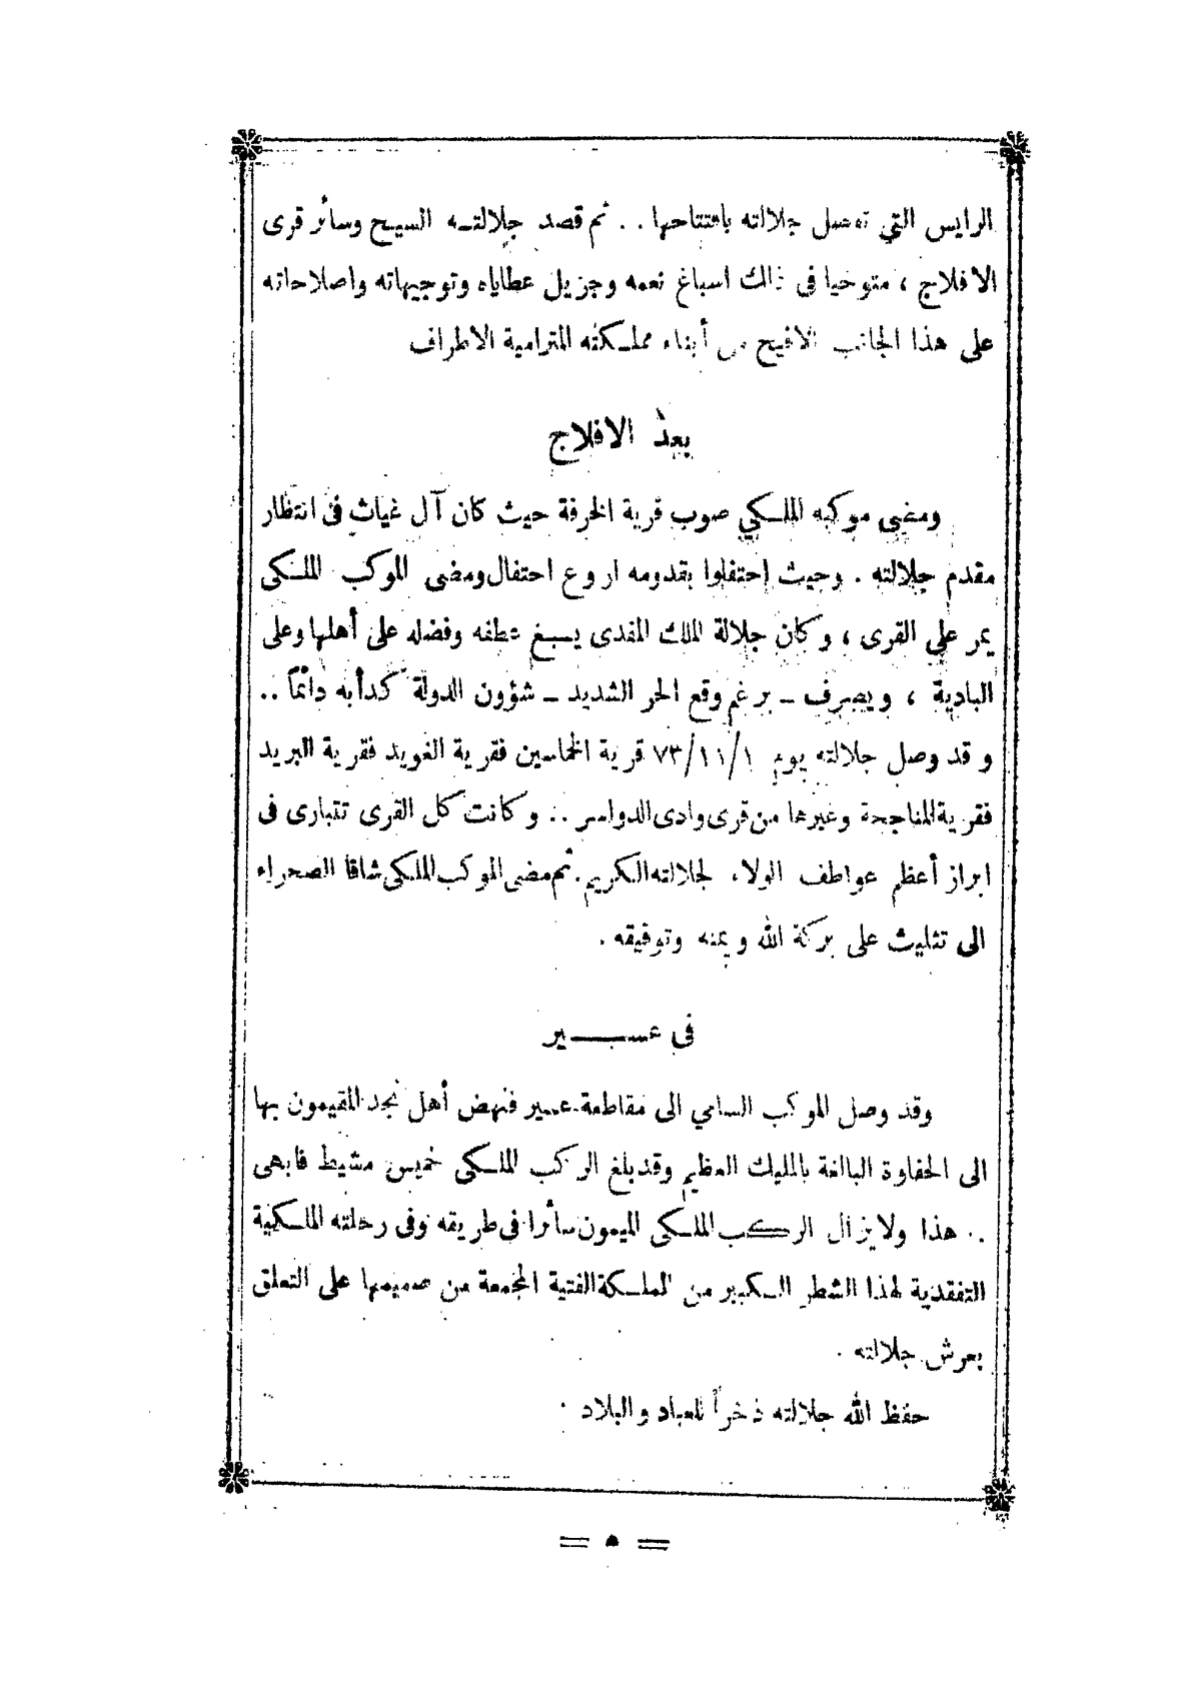 الرايس التي تفضل جلالته بافتتاحها . . ثم قصد جلالتـه السيح وسائر قرى
الافلاج ، متوخيا فى ذلك اسباغ نعمه وجزيل عطاياه وتوجيهاته واصلاحاته
على هذا الجانب الافيح من أبناء مملـكته المترامية الاطراف
بعد الافلاج
ومضى موكبه الملـكي صوب قرية الخرفة حيث كان آل غياث فى انتظار
مقدم جلالته . وحيث إحتفلوا بقدومه اروع احتفال ومضى الموكب الملـكى
يمر على القرى ، وكان جلالة الملك المفدى يسبغ عطفه وفضله على أهلها وعلى
البادية ، ويصرف ــ برغم وقع الحر الشديد ــ شؤون الدولة كدأبه دائماً . .
وقد وصل جلالته يوم ٧٣/١١/١ قرية الخماسين فقرية الغويد فقرية البريد
فقرية المناجحة وغيرها من قرى وادى الدواسر . . وكانت كل القرى تتبارى فى
ابراز أعظم عواطف الولاء لجلالته الكريم . ثم مضى الموكب الملـكى شاقا الصحراء
الى تثليث على بركة الله ويمنه وتوفيقه .
فى عســـير
وقد وصل الموكب السامي الى مقاطعة عسير فنهض أهل نجد المقيمون بها
الى الحفاوة البالغة بالمليك العظيم وقد بلغ الركب الملـكى خميس مشيط فابهى
. . هذا ولايزال الركب الملـكى الميمون سائرا فى طريقه وفى رحلته الملـكية
التفقدية لهذا الشطر الـكبير من المملـكة الفتية المجمعة من صميمها على التعلق
بعرش جلالته .
حفظ الله جلالته ذخراً للعباد والبلاد .